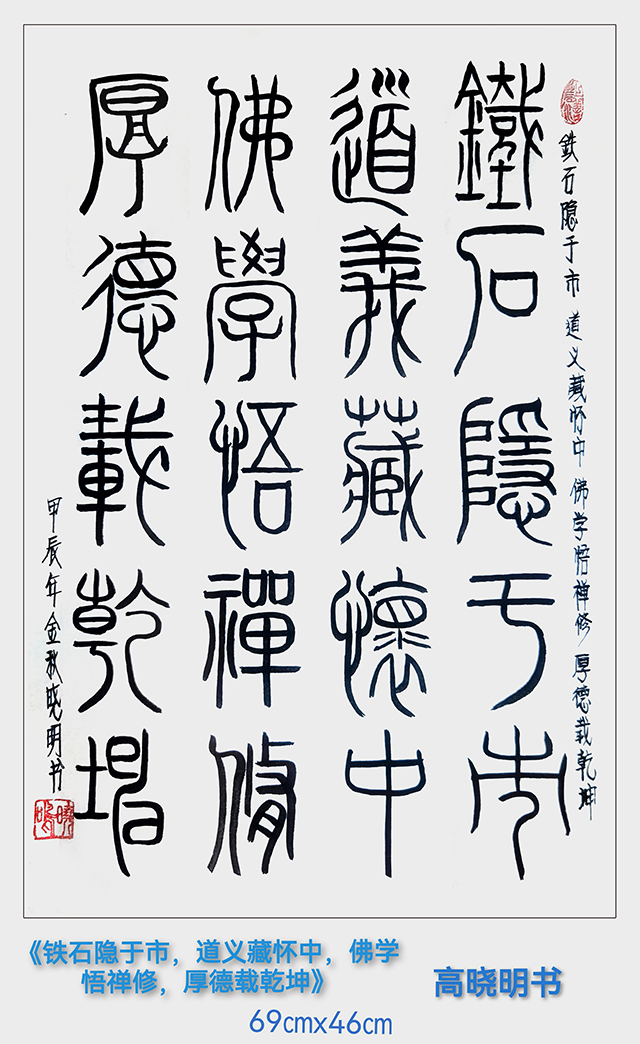 鉄石隐于市 道义藏怀中 佛学悟禅修 厚德载乾坤
鐵石隱于市
道義藏懷中
佛學悟禪脩
厚德載乾坤
甲辰年金秋晓明书
《铁石隐于市，道义藏怀中，佛学
悟禅修，厚德载乾坤》
高晓明书
69cmx46cm